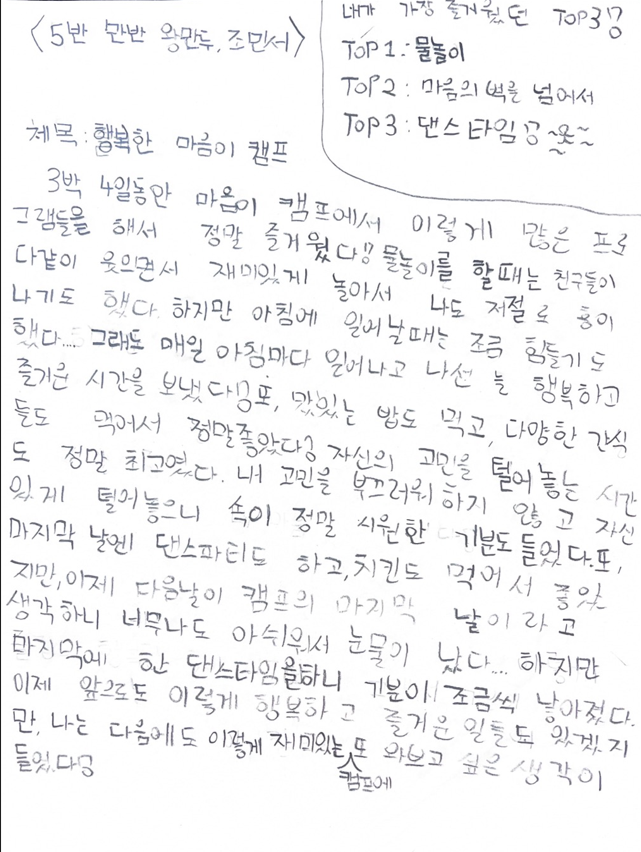 <5반 만반 왕만두, 조민서>
내가 가장 즐거웠던 TOP3!
TOP1: 물놀이
TOP2: 마음의 벽을 넘어서
TOP3: 댄스타임! ~옷~
체목: 행복한 마음이 캠프
3박 4일동안 마음이 캠프에서 이렇게 많은 프로
그램들을 해서 정말 즐거웠다!! 물놀이를 할때는 친구들이
다같이 웃으면서 재미있게 놀아서 나도 저절로 흥이
나기도 했다. 하지만 아침에 일어날때는 조금 힘들기도
했다.... 그래도 매일 아침마다 일어나고 나선 늘 행복하고
즐거운 시간을 보냈다! 또, 맛있는 밥도 먹고, 다양한 간식
들도 먹어서 정말좋았다! 자신의 고민을 털어놓는 시간
도 정말 최고였다. 내 고민을 부끄러워 하지 않고 자신
있게 털어놓으니 속이 정말 시원한 기분도 들었다. 또,
마지막 날엔 댄스파티도 하고, 치킨도 먹어서 좋았
지만, 이제 다음날이 캠프의 마지막 날이라고
생각하니 너무나도 아쉬워서 눈물이 났다... 하지만
마지막에 한 댄스타임을하니 기분이 조금씩 낳아졌다.
이제 앞으로도 이렇게 행복하고 즐거운 일들도 있겠지
만, 나는 다음에도 이렇게 재미있는 캠프에 또 와보고 싶은 생각이
들었다!